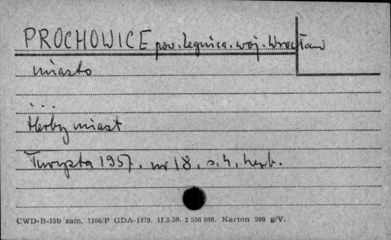 PROCHOWICE pow. Legnica. woj. Wrocław
miasto
...
Herby miast
Turysta 1957. nr 18. s. 4. herb.
CWD-B-15b zam. 1106/P GDA-1479. 11.5.59. 2 550 000. Karton 200 g/V.